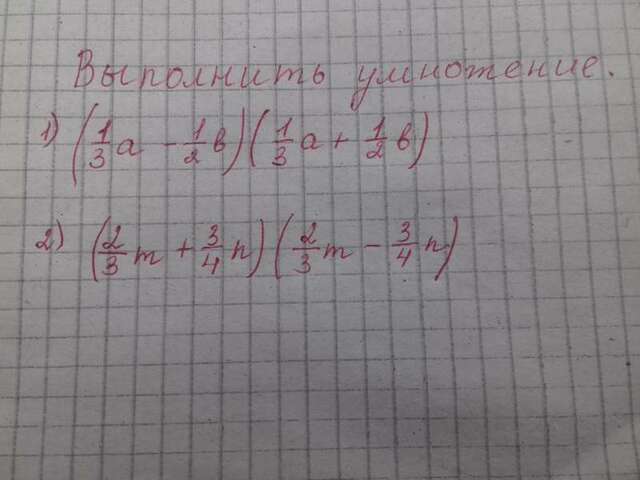 Выполнить умножение.
1) (1/3 a - 1/2 b)(1/3 a + 1/2 b)
2) (2/3 m + 3/4 n)(2/3 m - 3/4 n)